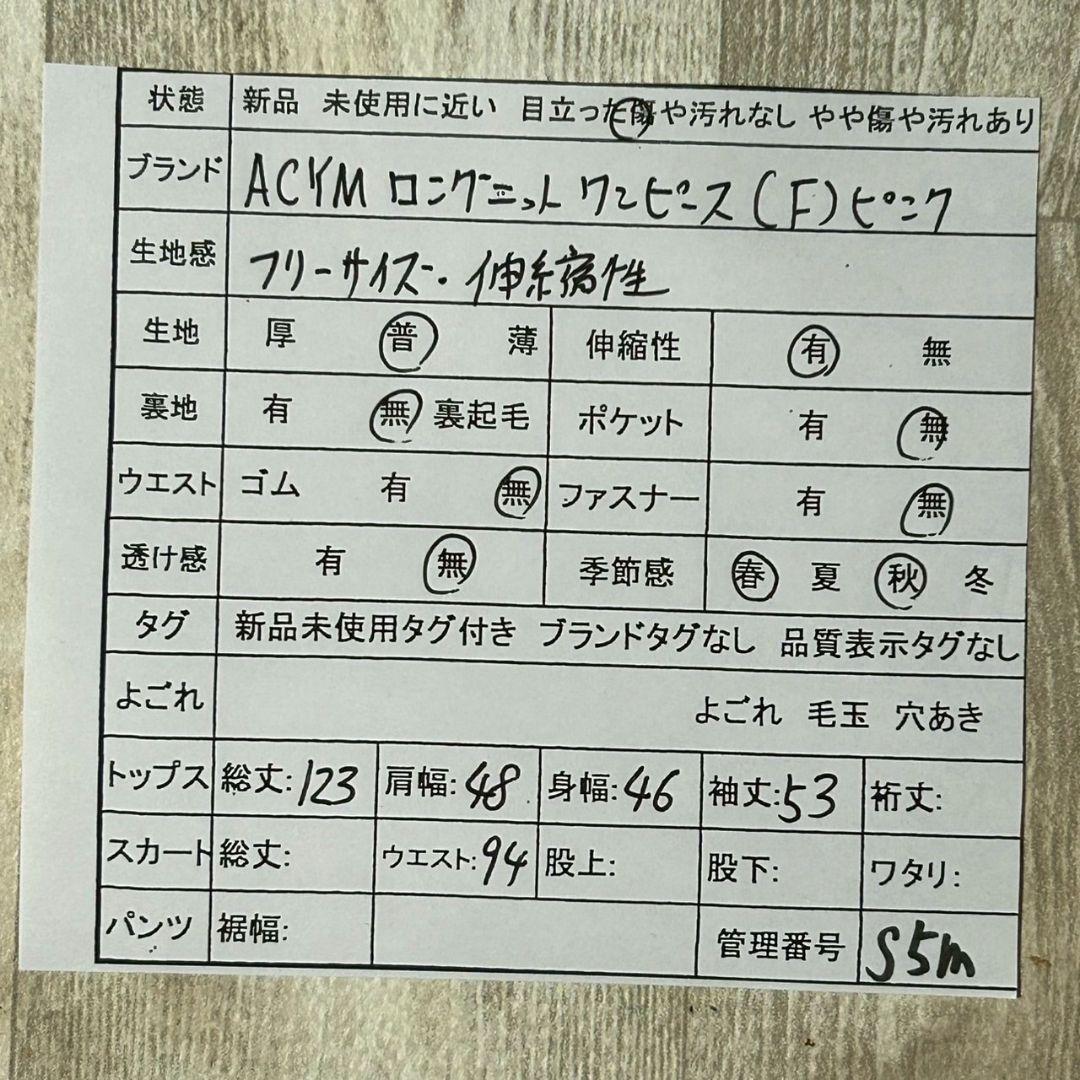 状態 新品 未使用に近い 目立った傷や汚れなし やや傷や汚れあり
ブランド ACYM ロングニット ワンピース (F) ピンク
生地感 フリーサイズ・伸縮性
生地 厚 普 薄 伸縮性 有 無
裏地 有 無 裏起毛 ポケット 有 無
ウエスト ゴム 有 無 ファスナー 有 無
透け感 有 無 季節感 春 夏 秋 冬
タグ 新品未使用タグ付き ブランドタグなし 品質表示タグなし
よごれ よごれ 毛玉 穴あき
トップス 総丈:123 肩幅:48 身幅:46 袖丈:53 裄丈:
スカート 総丈: ウエスト:94 股上: 股下: ワタリ:
パンツ 裾幅: 管理番号 S5m